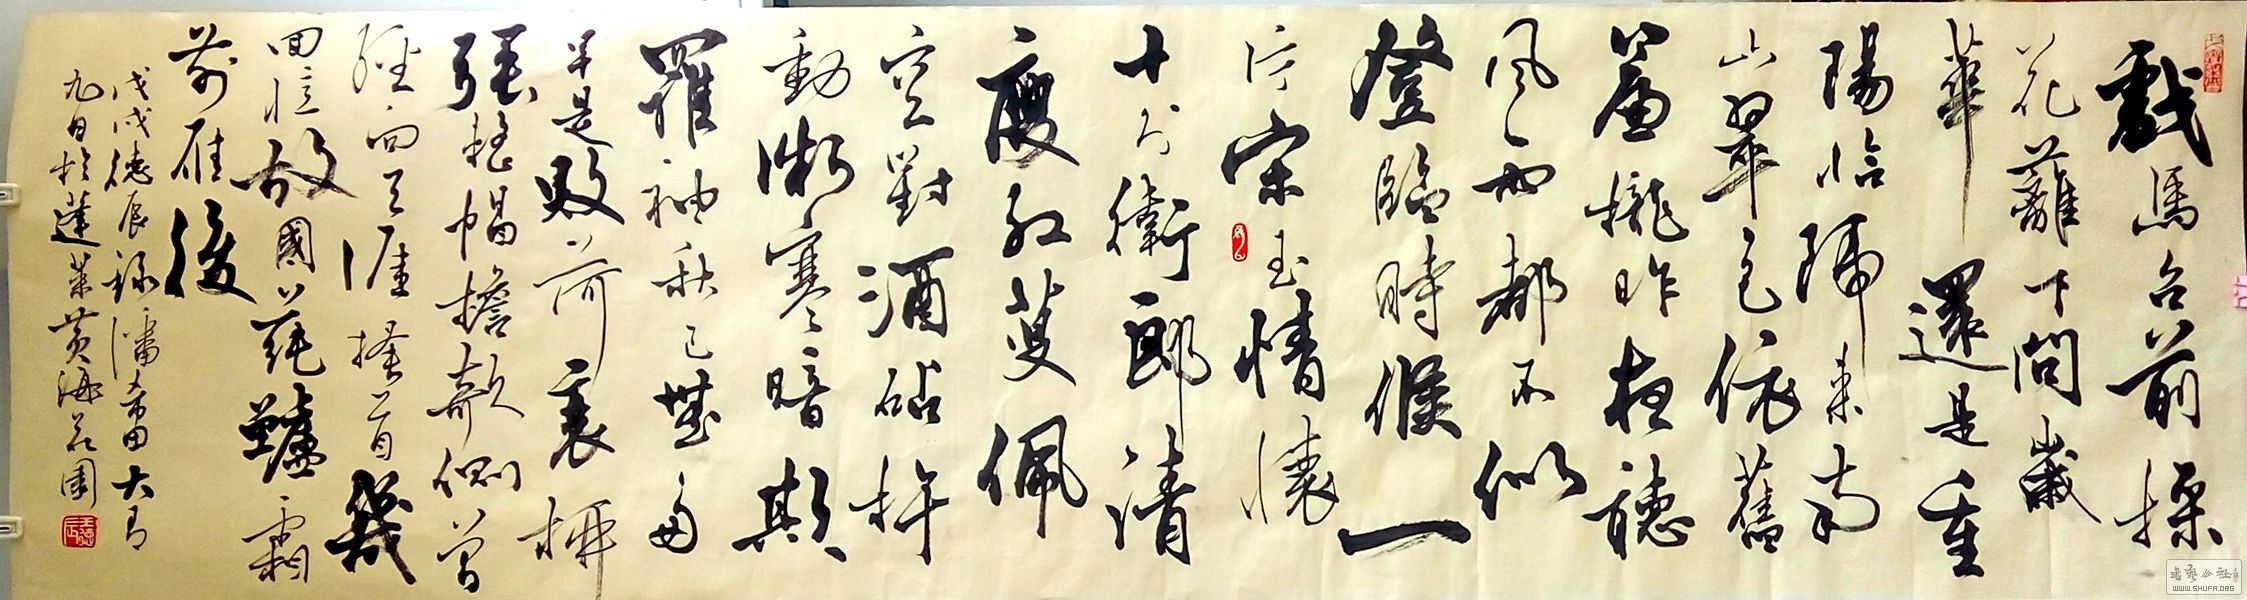 戲馬台前採
花蘺下問歲
華還是重
陽恰歸來南
山翠色依舊
簾櫳昨夜聽
風雨都不似
登臨時候一
片宋玉情懷
十分衛郎清
瘦紅萸佩
空對酒砧杵
動微寒暗欺
羅袖秋已無多
早是敗荷衰柳
強整帽檐欹側曾
經向天涯搔首幾
回憶故國蒓鱸霜
前雁後
戊戌德辰録潘希白大有
九日於蓬萊黄海花園
书艺公社
WWW.SHUFA.ORG